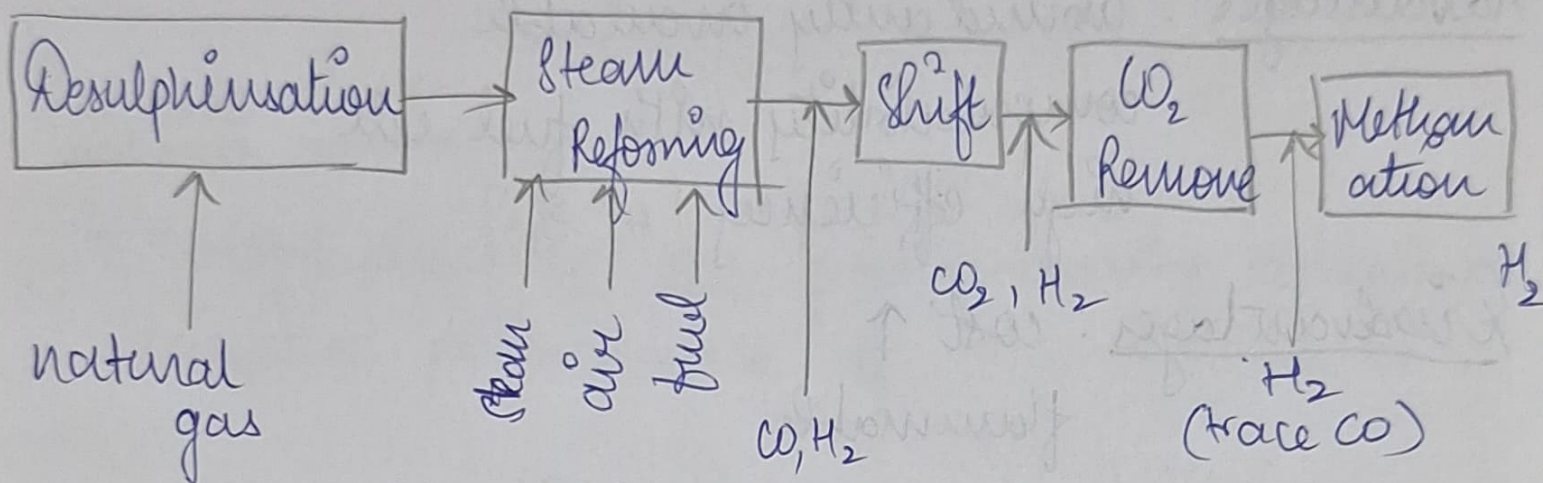 Desulphirisation
Steam
Reforming
Shift
CO₂
Remove
Methan
ation
natural
gas
steam
air
fuel
CO, H₂
CO₂, H₂
H₂
(trace CO)
H₂